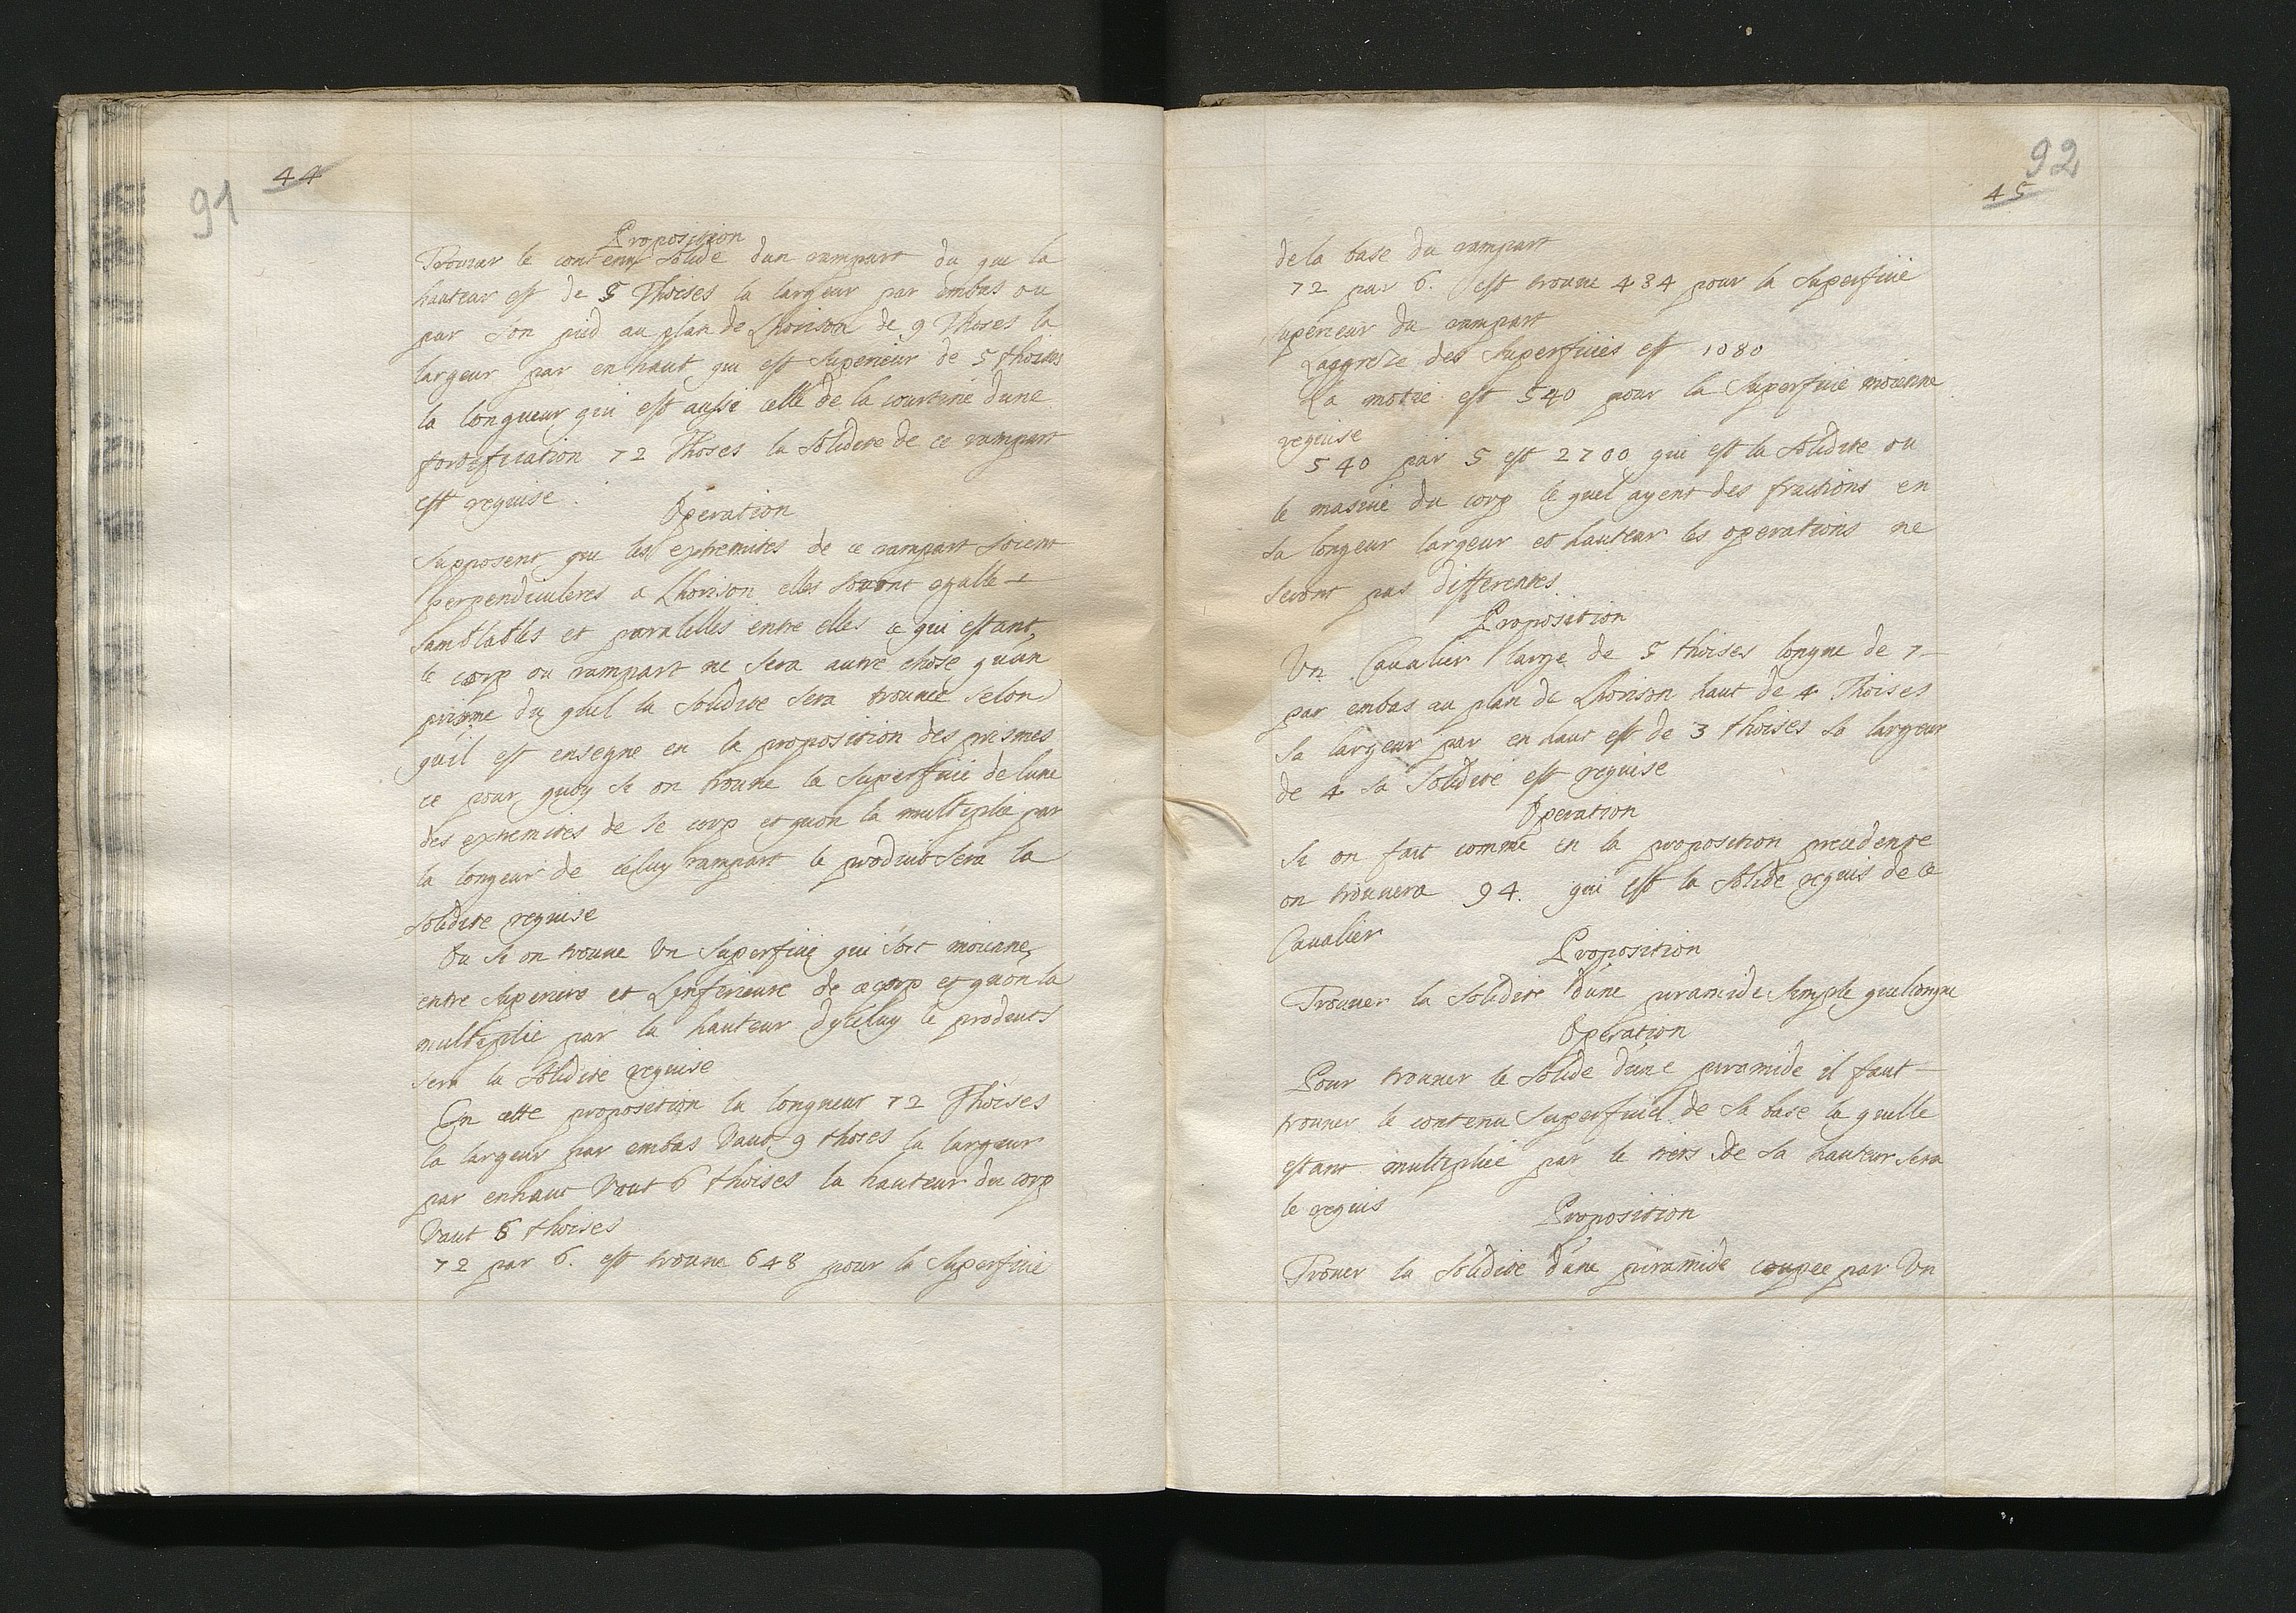 91
44
Proposition
Trouuer le contenu solide dun rampart du que la
hauteur est de 5 Thoises la largeur par embas ou
par son pied au plan de Lhorison de 9 Thoses la
largeur par en haut qui est superieur de 5 thoises
la longueur qui est aussi celle de la courtine dune
fortification 72 Thoses la solidite de ce rampart
est requise
Operation
Supposent que les extremites de ce rampart soient
perpendiculeres a Lhorison elles seront egalle
samblables et paralelles entre elles ce qui estant,
le corp ou rampart ne sera autre chose quun
prisme du quel la solidite sera trouuee selon
quil est ensegne en la proposition des prismes
ce pour quoy si on trouue la superficie de lune
des extremites de se corp et quon la multiplie par
la longeur de celuy rampart le produit sera la
solidite requise
Ou si on trouue Vn superficie qui soit moiane,
entre superiere et Linferieure de ce corp et quon la
multiplie par la hauteur dyceluy le produit
sera la solidite requise
En cette proposition la longueur 72 Thoises
la largeur par embas Vaut 9 thoses la largeur
par enhaut Vaut 6 thoises la hauteur du corp
Vaut 5 thoises
72 par 6. est trouue 648 pour la superficie
92
45
de la base du rampart
72 par 6. est trouue 434 pour la superficie
superieur du rampart
Laggreže des superficies est 1080
La motie est 540 pour la superficie moienne
requise
540 par 5 est 2700 qui est la solidite ou
le masiue du corp le quel ayent des fractions en
sa longeur largeur et hauteur les operations ne
seront pas differentes.
Proposition
Vn Caualier large de 5 thoises longue de 7
par embas au plan de Lhorison haut de 4 Thoises
sa largeur par en haut est de 3 thoises sa largeur
de 4 sa solidité est requise
Operation
Si on fait comme en la proposition precedente
on trouuera 94. qui est la solide requis de ce
Caualier
Proposition
Trouuer la solidite dune piramide simple quelongue
Operation
Pour trouuer le solide dune piramide il faut
trouuer le contenu superficiel de sa base la quelle
estant multipliée par le tiers de sa hauteur sera
le requis
Proposition
Trouer la solidite dune piramide coupee par Vn